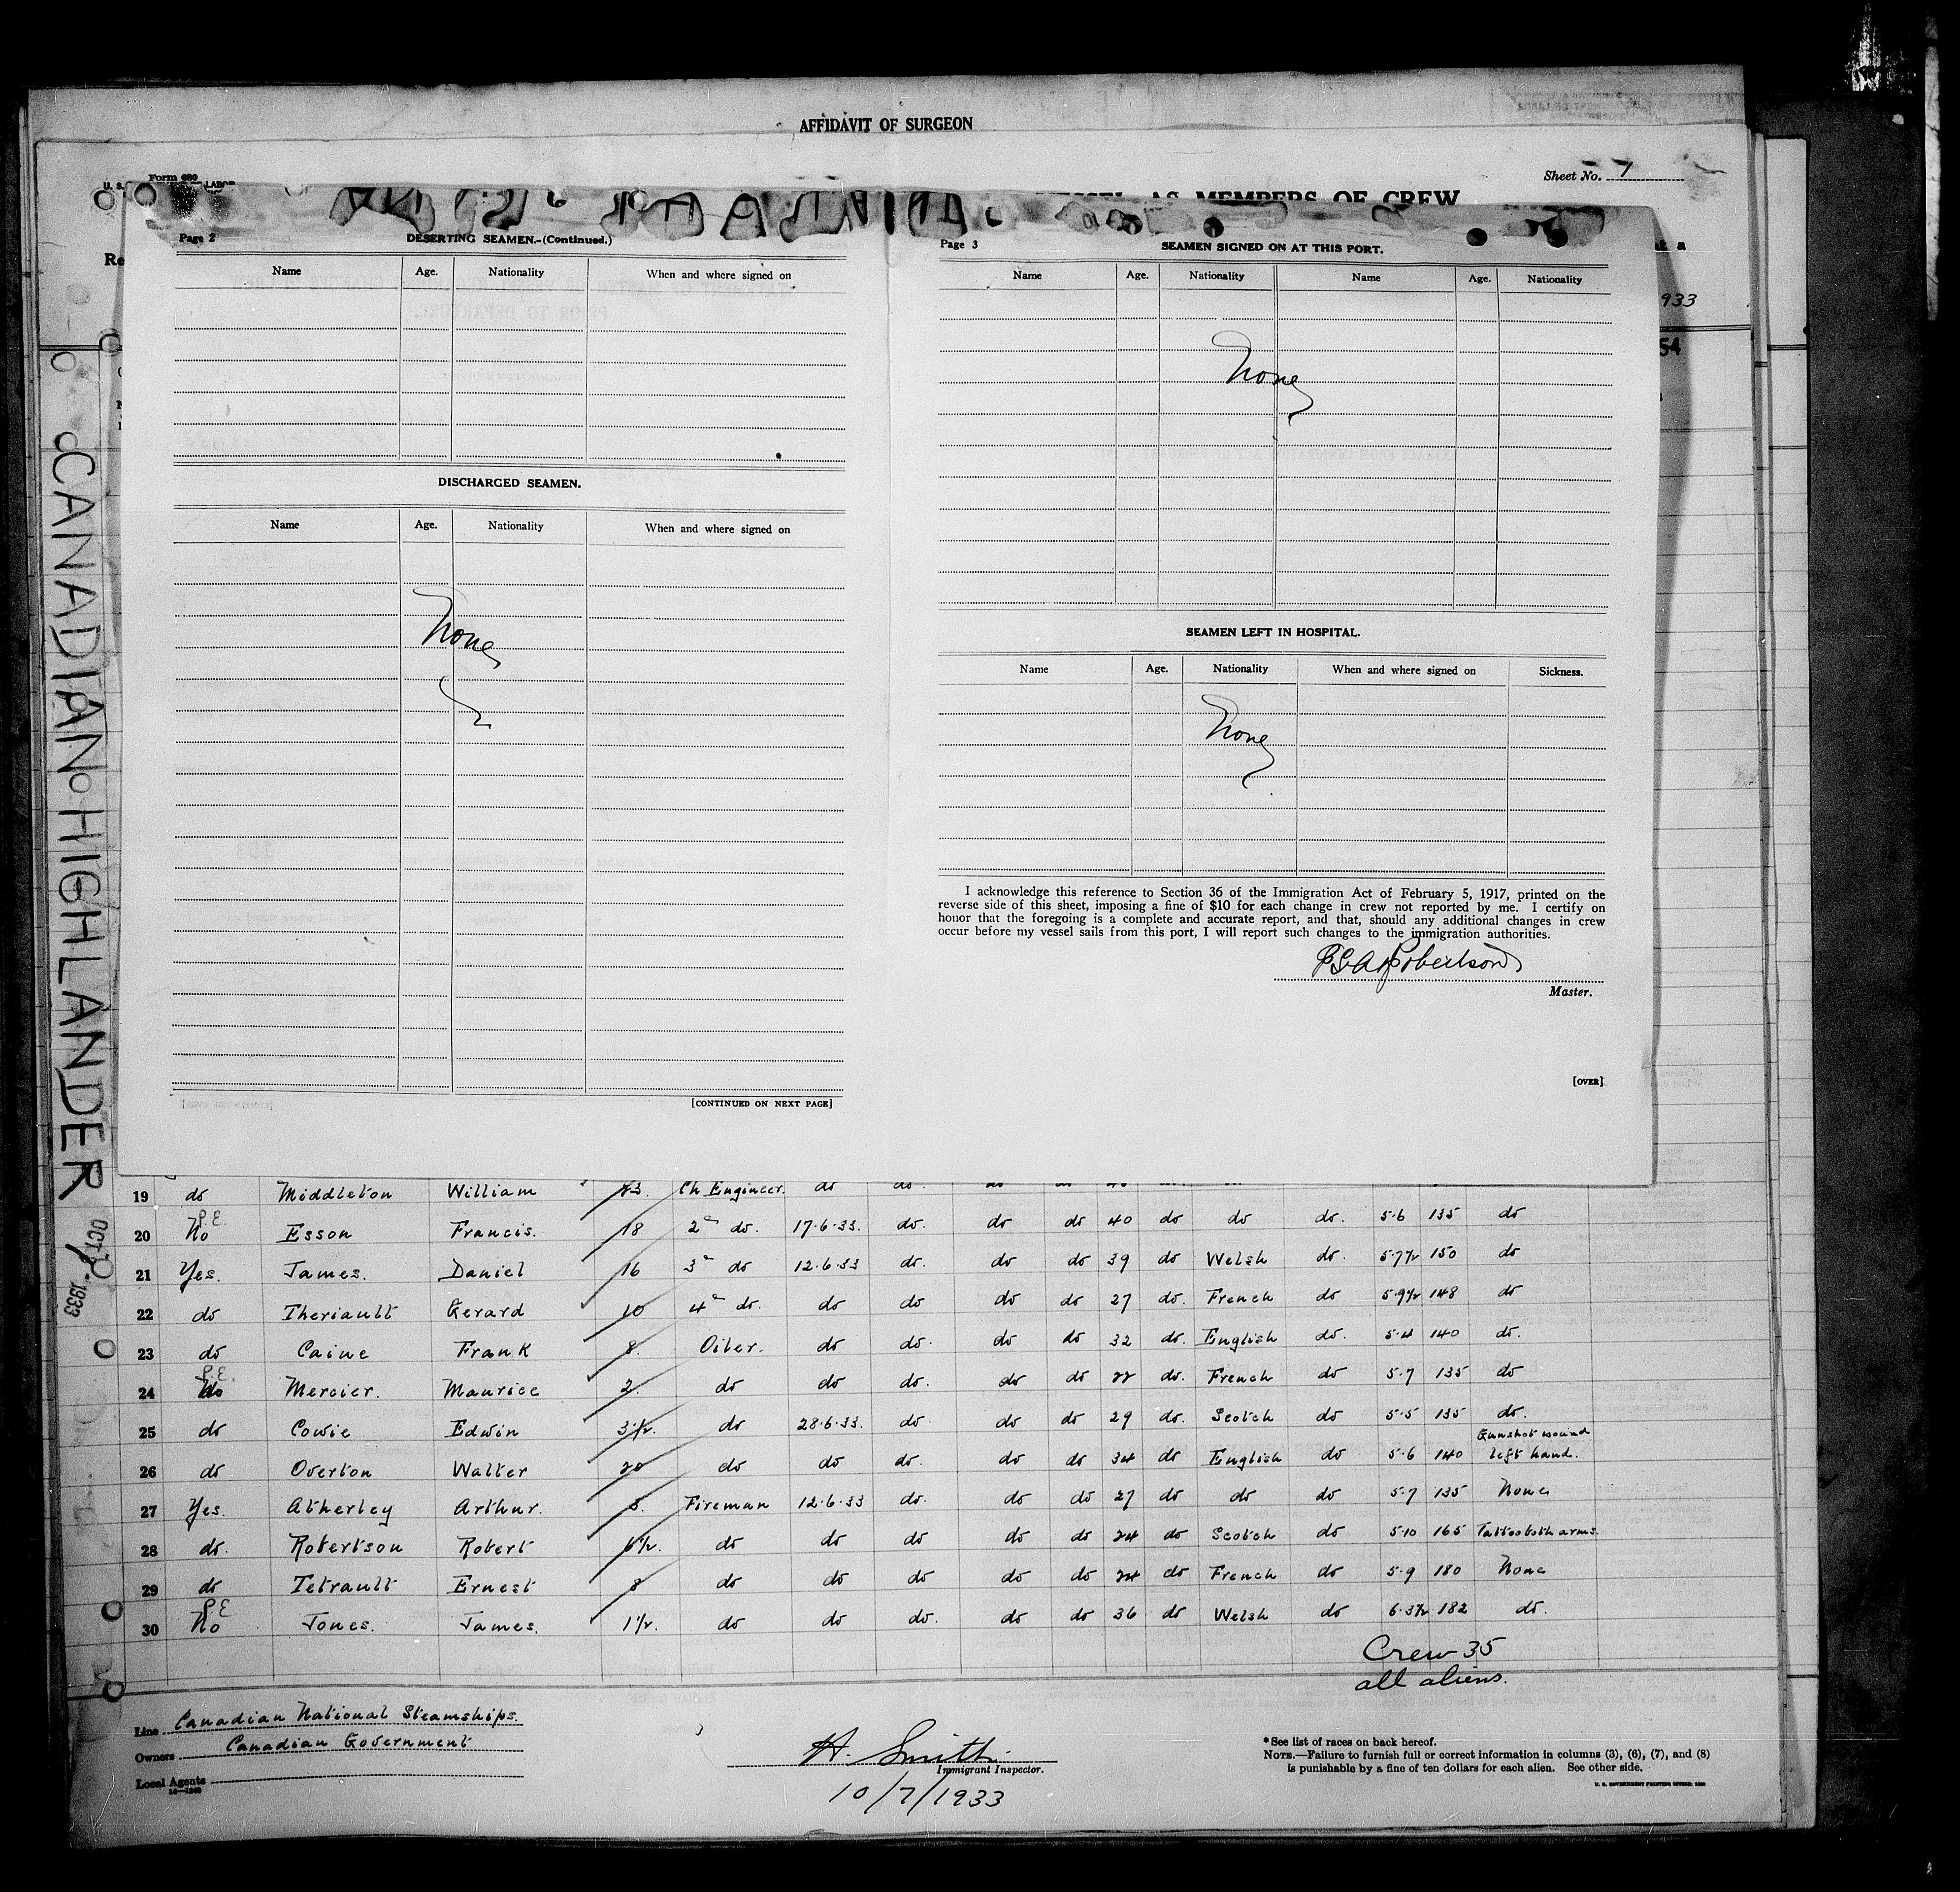 AFFIDAVIT OF SURGEON
Form 680
U. S. LABOR
Sheet No. 7
AS MEMBERS OF CREW
933
54
Page 2
DESERTING SEAMEN.-(Continued.)
Name Age. Nationality When and where signed on
DISCHARGED SEAMEN.
Name Age. Nationality When and where signed on
None
[CONTINUED ON NEXT PAGE]
Page 3
SEAMEN SIGNED ON AT THIS PORT.
Name Age. Nationality Name Age. Nationality
None
SEAMEN LEFT IN HOSPITAL.
Name Age. Nationality When and where signed on Sickness.
None
I acknowledge this reference to Section 36 of the Immigration Act of February 5, 1917, printed on the
reverse side of this sheet, imposing a fine of $10 for each change in crew not reported by me. I certify on
honor that the foregoing is a complete and accurate report, and that, should any additional changes in crew
occur before my vessel sails from this port, I will report such changes to the immigration authorities.
Robertson
Master.
[OVER]
CANADIAN HIGHLANDER
OCT 7 - 1933
19 do Middleton William 23. Ch Engineer. do do
20 P.E. No Esson Francis. 18 2nd do. 17.6.33. do. do do 40 do do do. 5.6 135 do
21 Yes. James. Daniel 16 3rd do 12.6.33 do. do do 39 do Welsh do. 5.7½ 150 do
22 do Theriault Gerard 10 4th do. do do do do 27 do. French do 5.9½ 148 do
23 do Caine Frank 8. Oiler. do do. do do 32 do. English do. 5.4 140 do.
24 P.E. No Mercier. Maurice 2. do do do. do do 22 do. French do 5.7 135 do
25 do Cowie Edwin 3½. do 28.6.33. do. do do 29 do. Scotch do 5.5 135 do.
26 do Overton Walter 20 do do do. do do 34 do English do 5.6 140 Gunshot wound left hand.
27 Yes. Atherley Arthur. 8. Fireman 12.6.33 do. do do 27 do do do 5.7 135 None
28 do. Robertson Robert 6½. do do do do do 24 do Scotch do 5.10 165 Tattoo both arms.
29 do Tetrault Ernest 8 do do do do do 24 do French do 5.9 180 None
30 P.E. No Jones. James. 1½. do do do. do do 36 do Welsh do 6.3½ 182 do.
Crew 35
all aliens.
Line Canadian National Steamships.
Owners Canadian Government
Local Agents
H. Smith
Immigrant Inspector.
10/7/1933
* See list of races on back hereof.
NOTE.—Failure to furnish full or correct information in columns (3), (6), (7), and (8)
is punishable by a fine of ten dollars for each alien. See other side.
U. S. GOVERNMENT PRINTING OFFICE